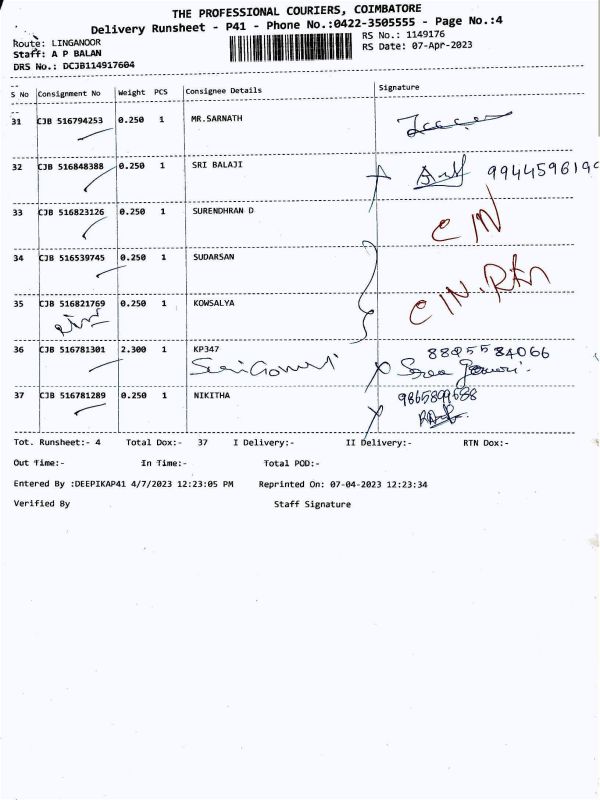 THE PROFESSIONAL COURIERS, COIMBATORE
Delivery Runsheet - P41 - Phone No.:0422-3505555 - Page No.:4
Route: LINGANOOR
RS No.: 1149176
Staff: A P BALAN
RS Date: 07-Apr-2023
DRS No.: DCJB114917604
S No Consignment No Weight PCS Consignee Details Signature
31 CJB 516794253 0.250 1 MR.SARNATH
32 CJB 516848388 0.250 1 SRI BALAJI
33 CJB 516823126 0.250 1 SURENDHRAN D CIN
34 CJB 516539745 0.250 1 SUDARSAN
CIN.RTn
35 CJB 516821769 0.250 1 KOWSALYA
36 CJB 516781301 2.300 1 KP347
37 CJB 516781289 0.250 1 NIKITHA
Tot. Runsheet:- 4 Total Dox:- 37 I Delivery:- II Delivery:- RTN Dox:-
Out Time:- In Time:- Total POD:-
Entered By :DEEPIKAP41 4/7/2023 12:23:05 PM Reprinted On: 07-04-2023 12:23:34
Verified By Staff Signature